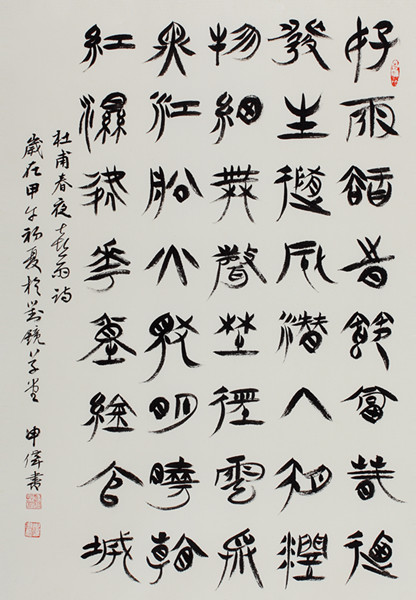 好雨知時節當春乃
發生隨風潛入夜潤
物細無聲埜徑雲俱
黑江船火獨明曉看
紅濕處花重錦官城
杜甫春夜喜雨詩
歲在甲午初夏於鏡草堂 申偉書